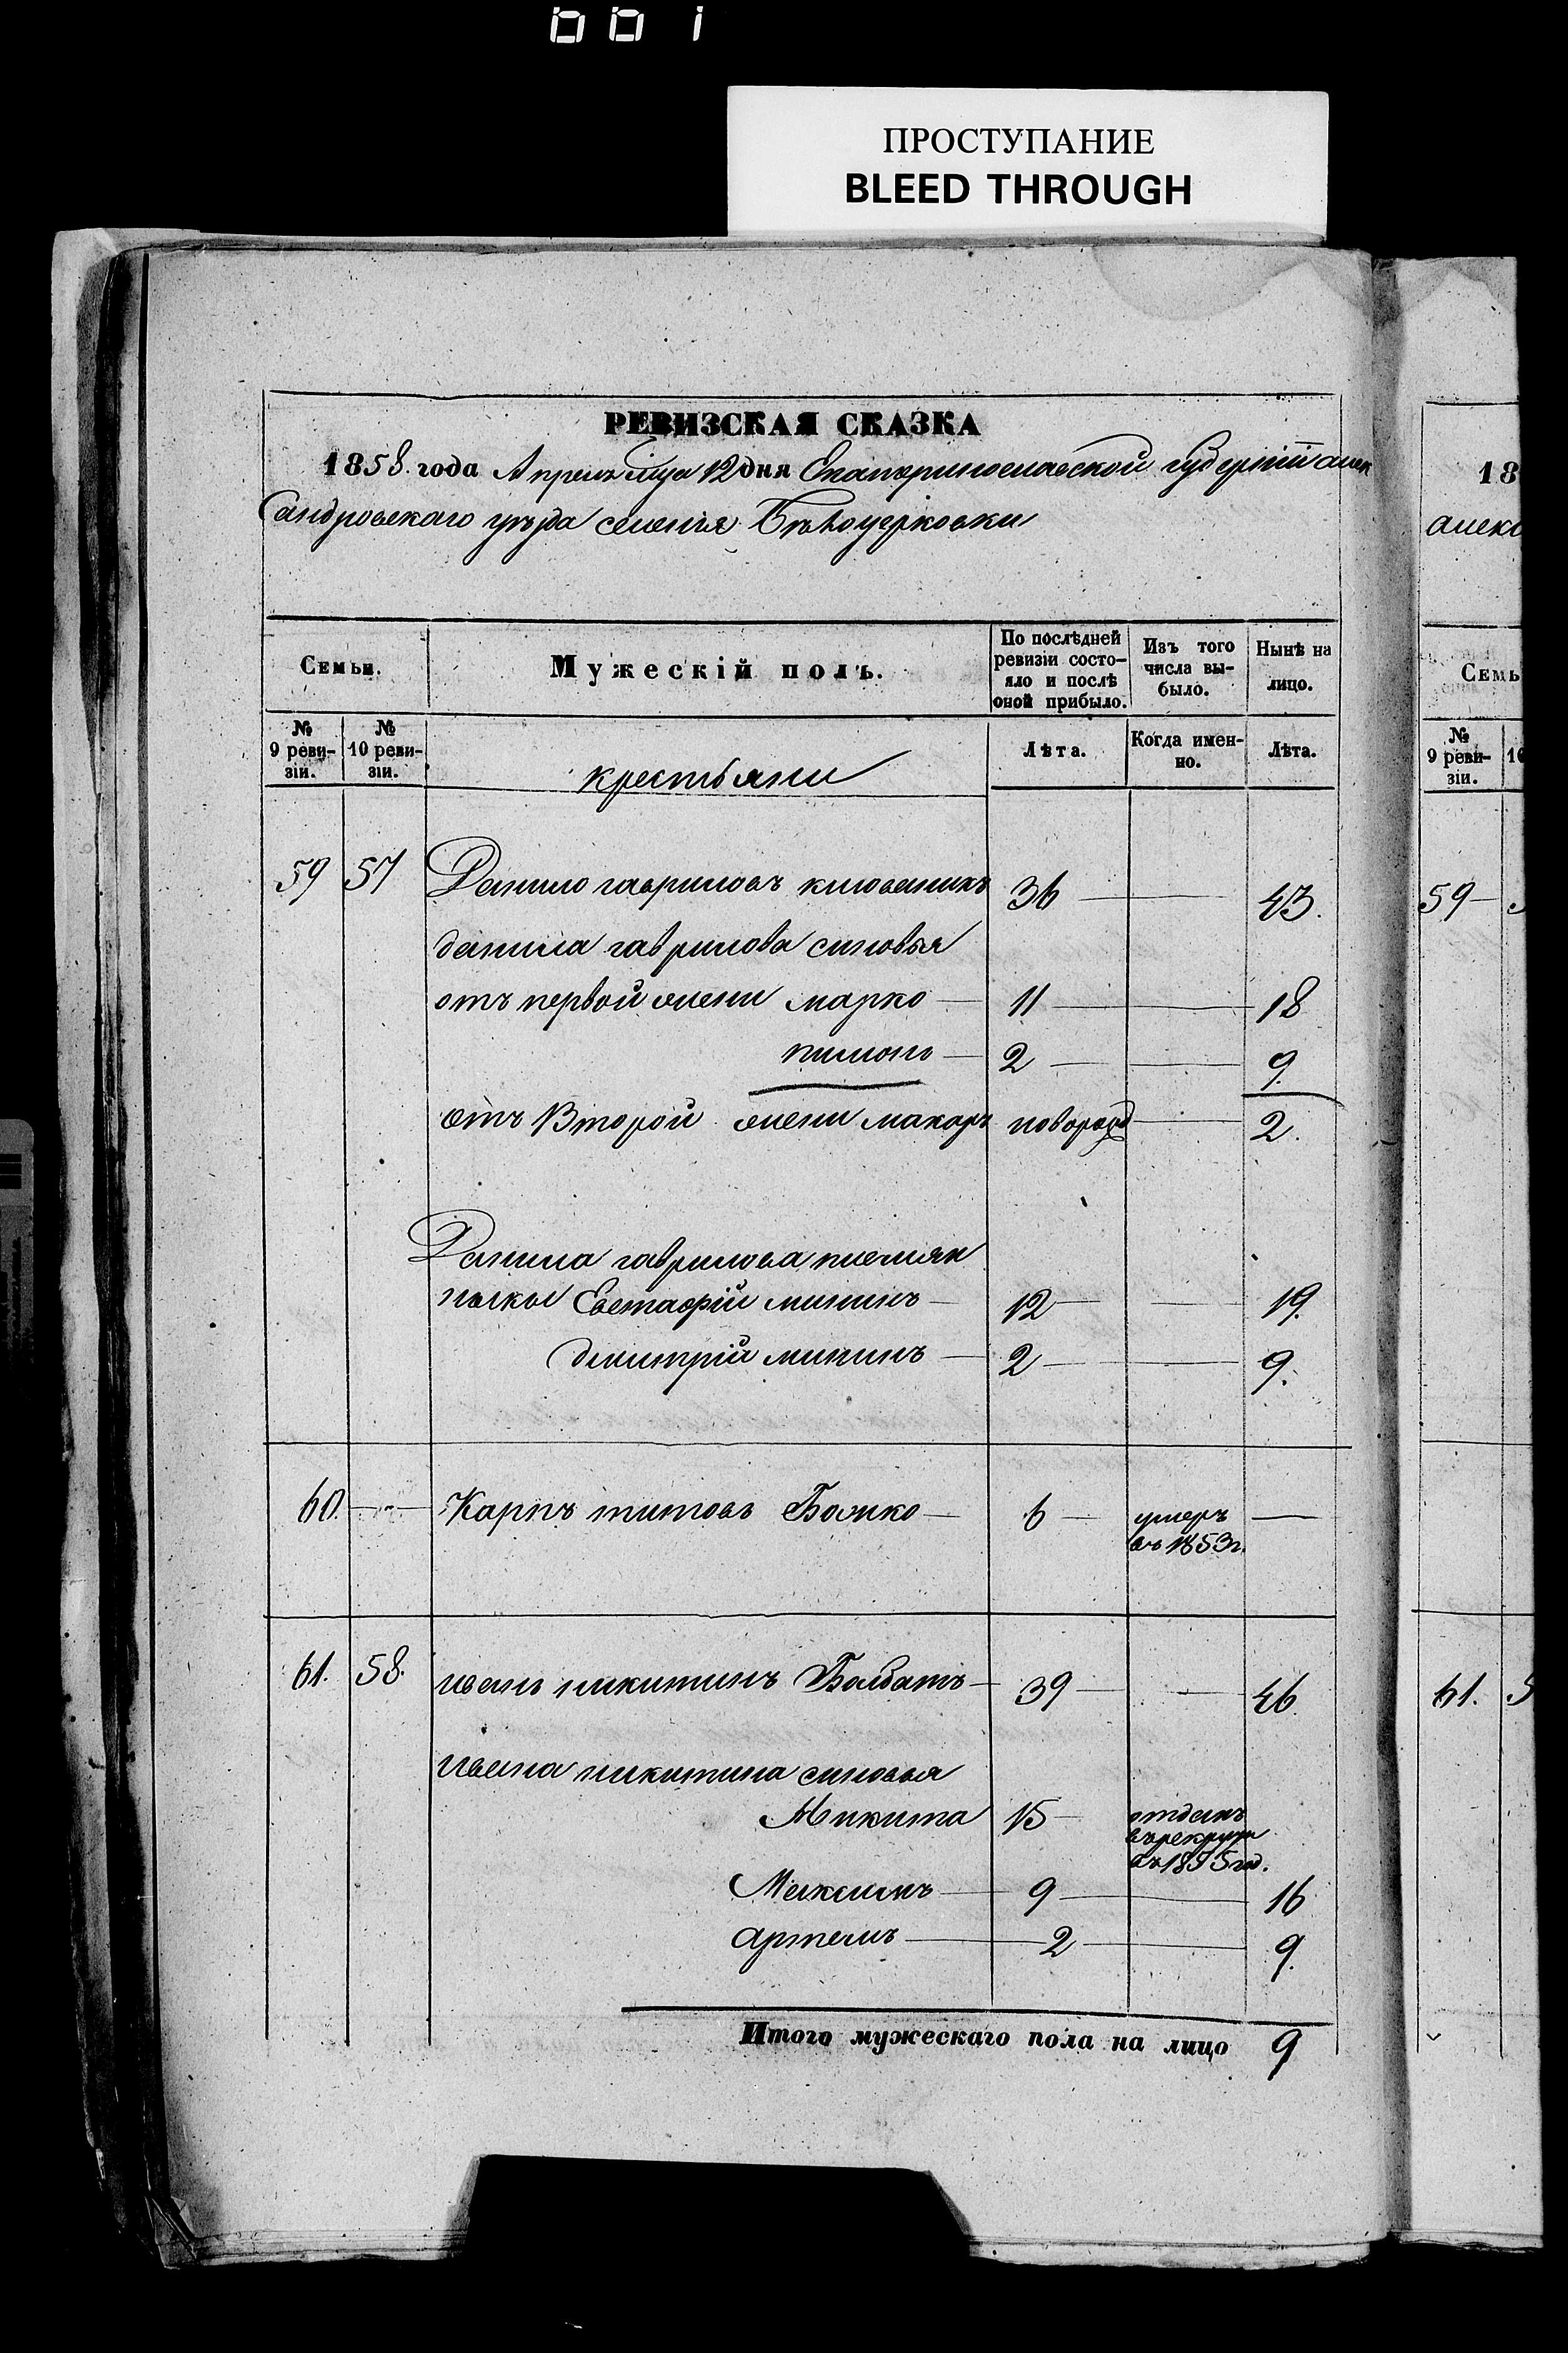 001
ПРОСТУПАНИЕ
BLEED THROUGH
РЕВИЗСКАЯ СКАЗКА
1858. года Апреля м͠ца 12 дня Екатеринославской губерніи алек
Сандровскаго уезда селенія Беловцерковки
Семьи.
Мужескій полъ.
По послѣдней ревизіи состо-
яло и послѣ оной прибыло.
Изъ того числа вы-
было.
Нынѣ на лицо.
№ 9 реви-
зіи.
№ 10 реви-
зіи.
крестьяни
Лѣта.
Когда имен-
но.
Лѣта.
59 57 Данило гавриловъ 36 — — 43.
данила гаврилова синовья
отъ первой жени марко — 11 — — 18
пимонъ — 2 — — 9.
отъ Второй жени макаръ поворожд — 2.
Данила гаврилова племян
ныкы Евстафій мининъ — 12 — — 19.
дмитрій мининъ — 2 — — 9.
60. — Карпъ титовъ Божко — 6 — умеръ —
въ 1853 г.
61. 58. иванъ никитинъ Балбатъ — 39 — — 46.
ивана никитина синовья
Микита 15 — отданъ
в рекруты
въ 1855 год.
Максимъ — 9 — — 16
артемъ — 2 — — 9.
Итого мужескаго пола на лицо 9
18
алекс
Семь
№ 9 реви-
зіи.
10
59 —
61. 5